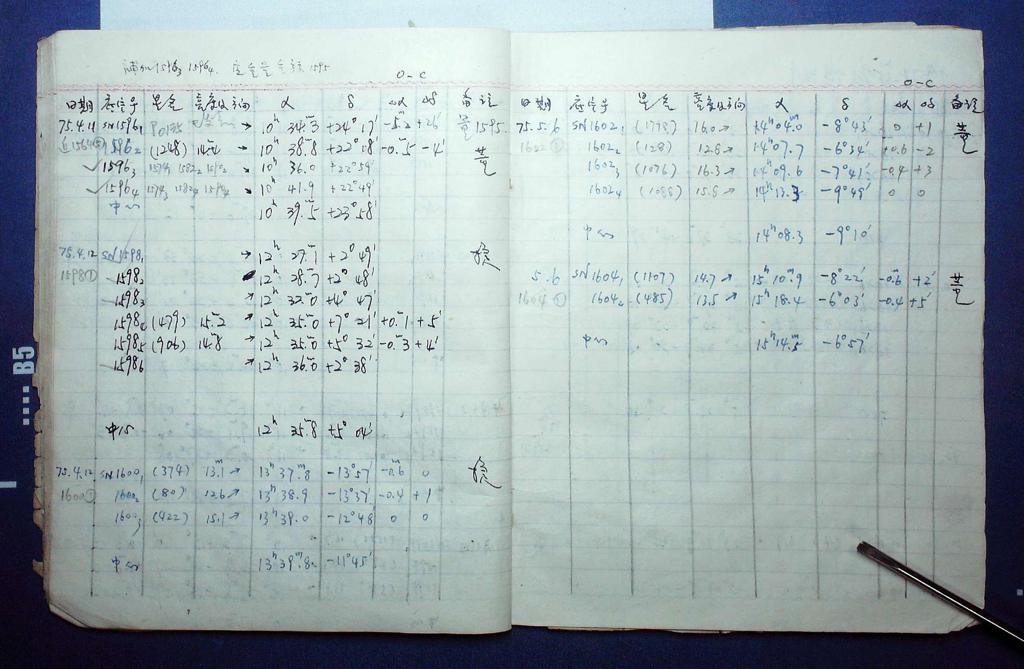 1595
O-C
日期 底片号 星名 亮度及方向 α δ Δα Δδ 备注
75.4.11 SN1596₁ 10ʰ 34.ᵐ3 +24°17′ -5.ᵐ2 1595.
1596₂ (1248) 10ʰ 38.8 +22°58′ -0.ᵐ5 -4′
1596₃ → 10ʰ 36.0 +22°59′
1596₄ → 10ʰ 41.9 +22°49′
中心 10ʰ 39.ᵐ5 +23°58′
75.4.12 SN1598₁ → 12ʰ 27.ᵐ7 +2°49′
1598① 1598₂ 12ʰ 28.ᵐ7 +2°48′
1598₃ → 12ʰ 32.ᵐ0 +4°47′
1598₄ (479) 15.ᵐ2 → 12ʰ 35.ᵐ0 +7°21′ +0.ᵐ1 +5′
1598₅ (906) 14.ᵐ8 → 12ʰ 35.ᵐ0 +5°32′ -0.ᵐ3 +4′
1598₆ → 12ʰ 36.ᵐ0 +2°38′
中心 12ʰ 35.ᵐ8 +5°04′
75.4.12 SN1600₁ (374) 13.ᵐ1 → 13ʰ37.ᵐ8 -13°57′ -0.ᵐ6 0
1600① 1600₂ (80) 12.6 ↗ 13ʰ38.9 -13°37′ -0.4 +1
1600₃ (422) 15.1 → 13ʰ39.0 -12°48′ 0 0
中心 13ʰ39.ᵐ8 -11°45′
O-C
日期 底片号 星名 亮度及方向 α δ Δα Δδ 备注
75.5.6 SN1602₁ 16.0 14ʰ04.ᵐ0 -8°43′ 0 +1
1602₂ (128) 12.8 14ʰ07.7 -6°34′ +0.6 -2
1602₃ (1076) 16.3 → 14ʰ09.6 -7°41′ -0.4 +3
1602₄ 15.8 → 14ʰ13.3 -9°49′ 0 0
中心 14ʰ08.3 -9°10′
5.6 SN1604₁ (1107) 14.7 ↗ 15ʰ10.ᵐ9 -8°22′ -0.ᵐ6 +2′
1604① 1604₂ (485) 13.5 ↗ 15ʰ18.4 -6°03′ -0.4 +5′
中心 15ʰ14.ᵐ5 -6°57′
B5